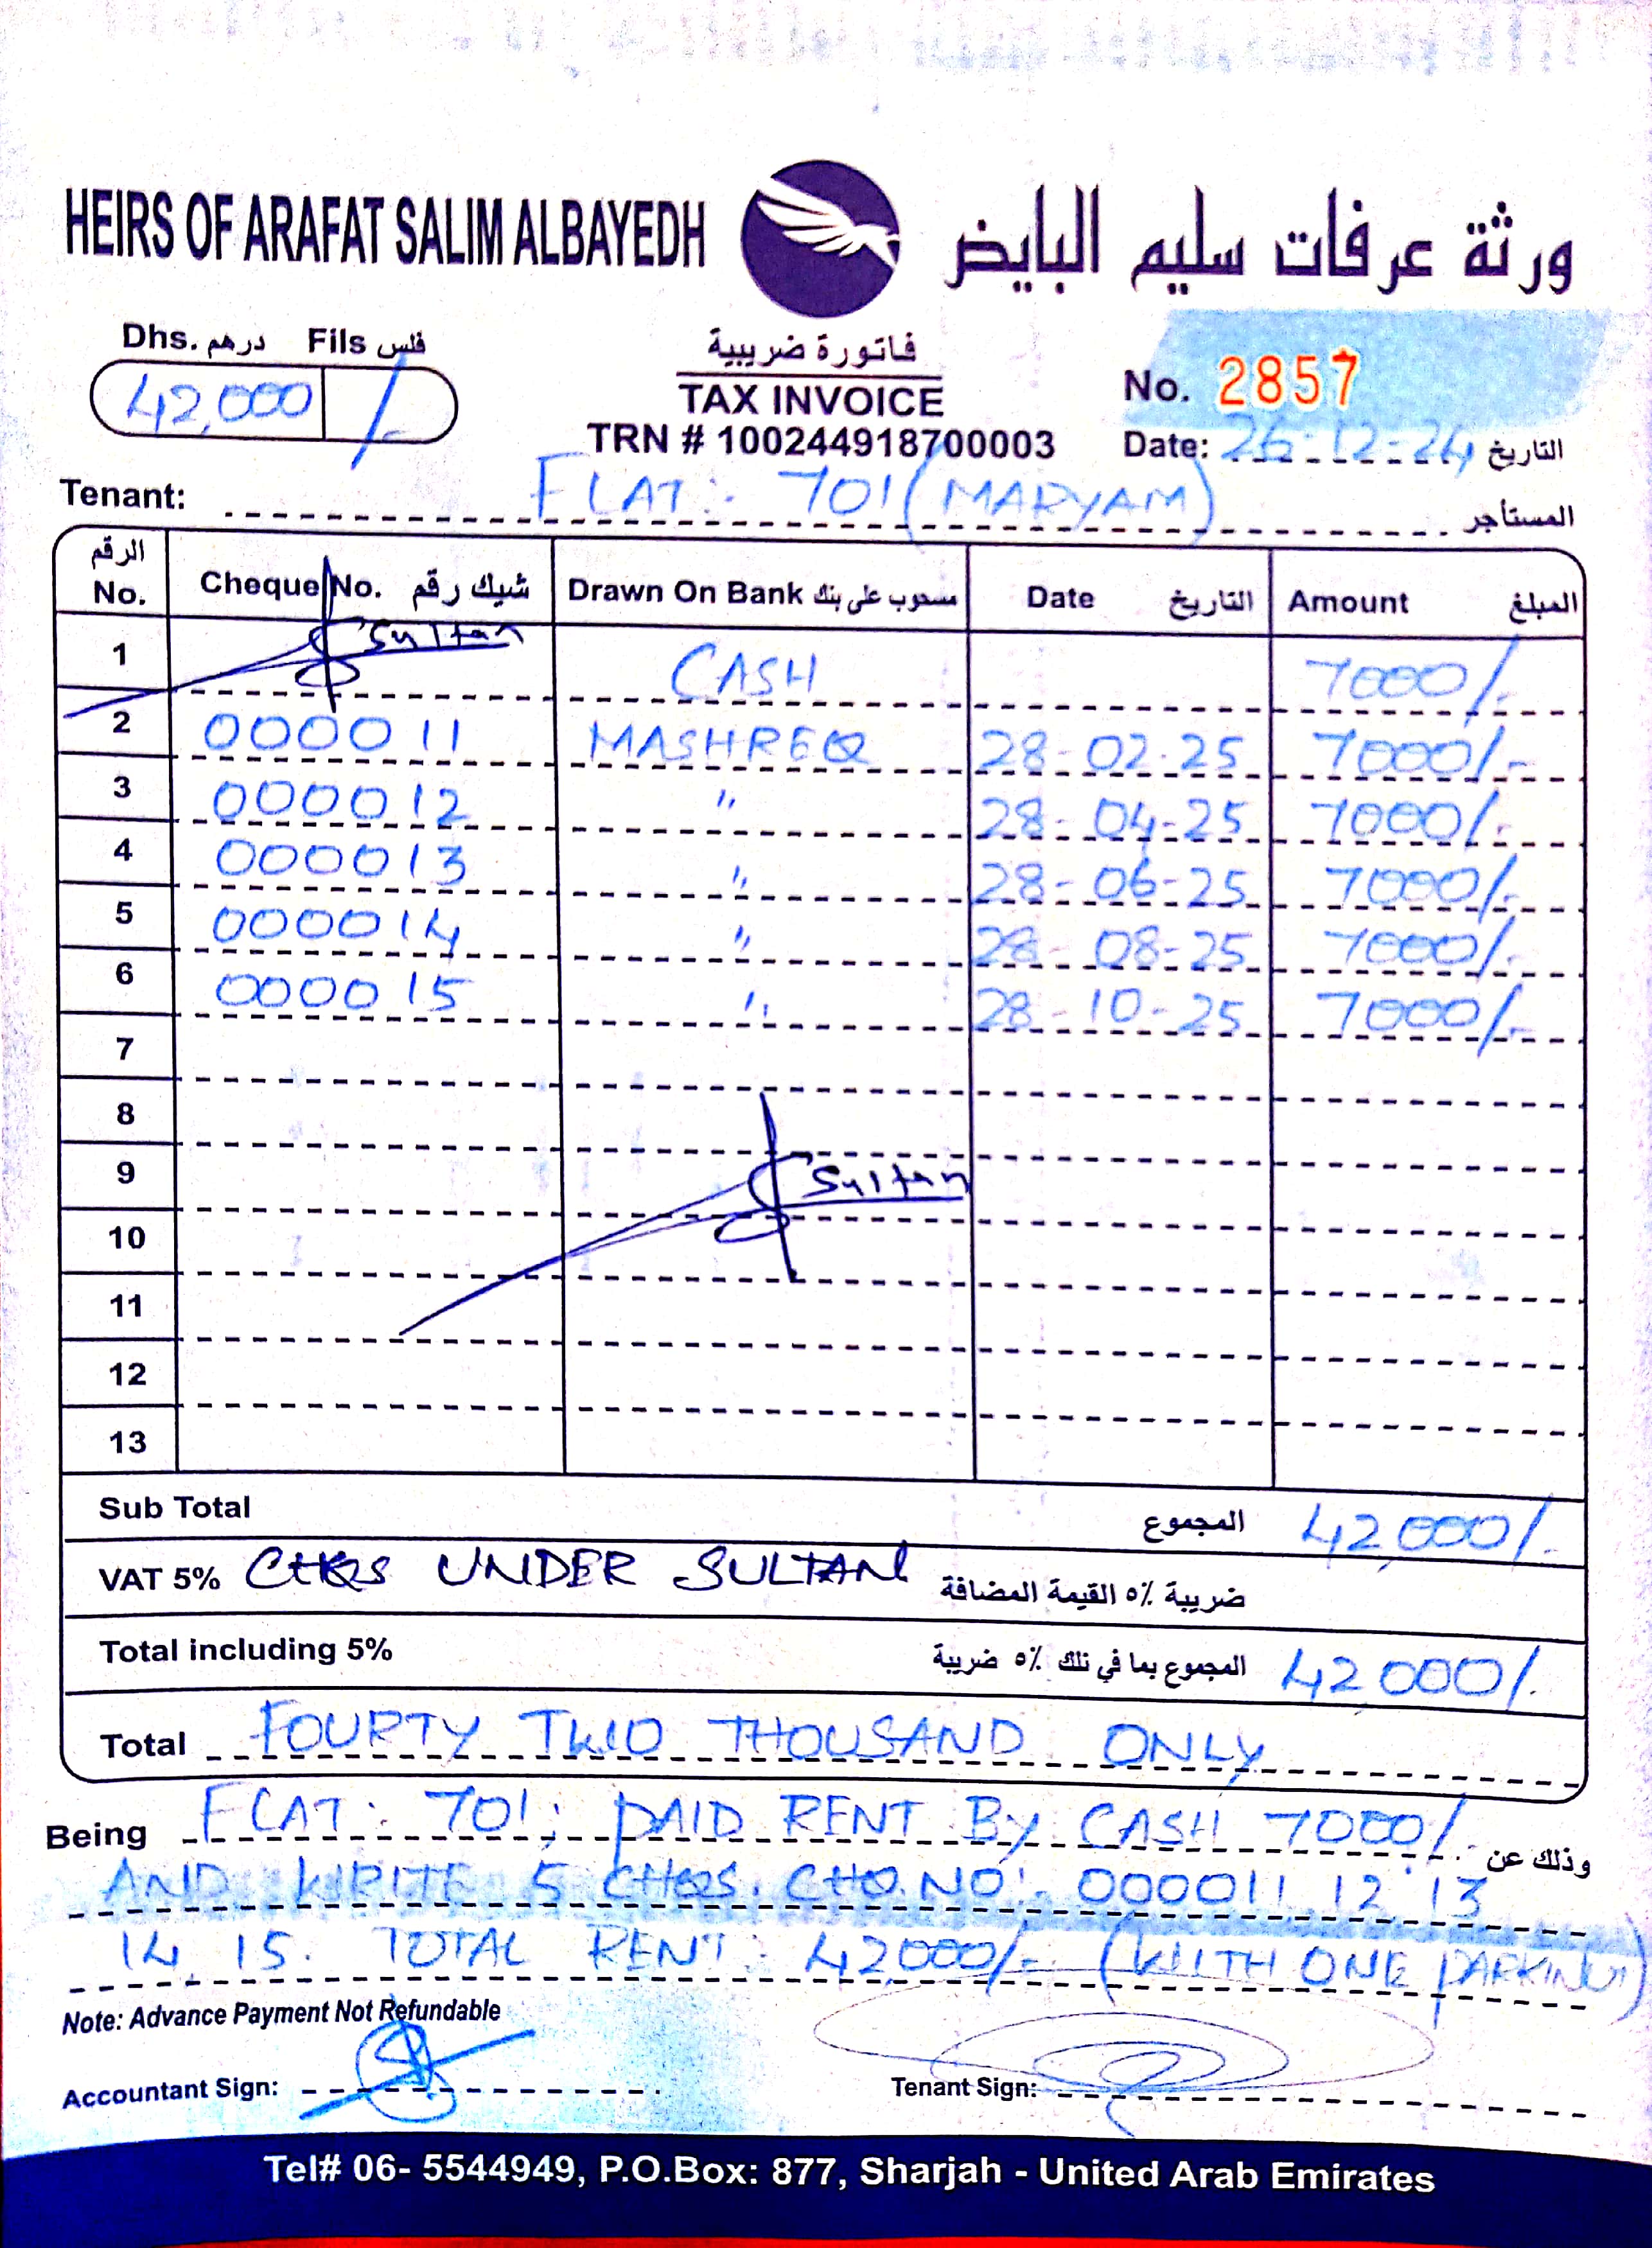 HEIRS OF ARAFAT SALIM ALBAYEDH ورثة عرفات سليم البايض
Dhs. درهم Fils فلس
42,000 /-
فاتورة ضريبية
TAX INVOICE
TRN # 100244918700003
No. 2857
Date: 26-12-24 التاريخ
Tenant: FLAT: 701 (MARYAM) المستأجر
الرقم No. Cheque No. شيك رقم Drawn On Bank مسحوب على بنك Date التاريخ Amount المبلغ
1 Sultan CASH 7000/-
2 000011 MASHREQ 28-02-25 7000/-
3 000012 " 28-04-25 7000/-
4 000013 " 28-06-25 7000/-
5 000014 " 28-08-25 7000/-
6 000015 " 28-10-25 7000/-
7
8
9 Sultan
10
11
12
13
Sub Total المجموع 42,000/-
VAT 5% CHQS UNDER SULTAN ضريبة ٥٪ القيمة المضافة
Total including 5% المجموع بما في ذلك ٥٪ ضريبة 42000/-
Total FOURTY TWO THOUSAND ONLY
Being FLAT: 701; PAID RENT BY CASH 7000/- وذلك عن
AND WRITE 5 CHQS. CHQ.NO:- 000011, 12, 13
14, 15. TOTAL RENT: 42,000/- (WITH ONE PARKING)
Note: Advance Payment Not Refundable
Accountant Sign: Tenant Sign:
Tel# 06- 5544949, P.O.Box: 877, Sharjah - United Arab Emirates